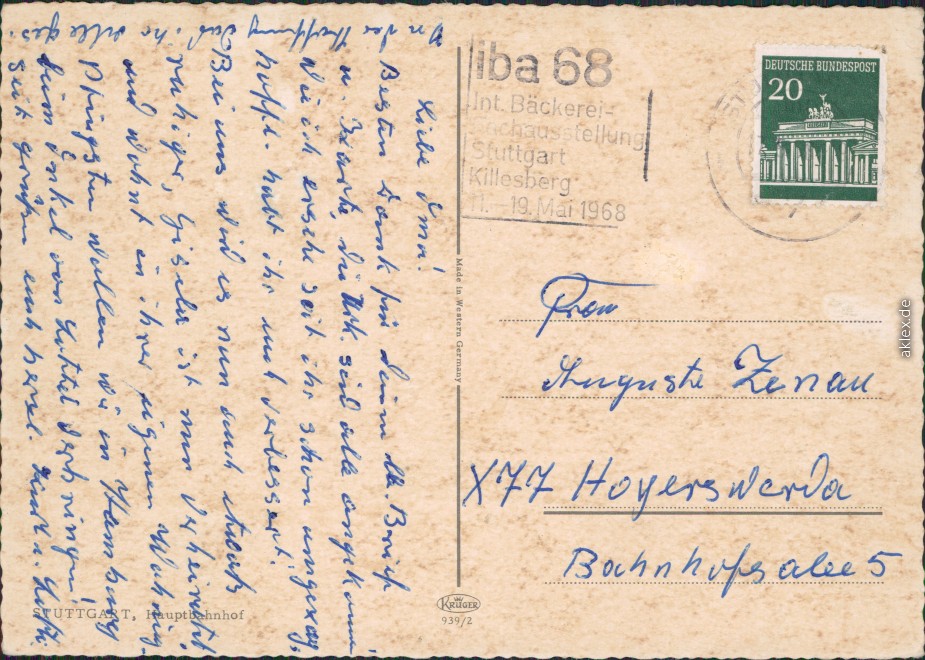 Liebe Oma!
Besten Dank für Deinen lb. Brief
u. Karte, die Urk. sind alle angekommen.
Wie ich ersehe seit ihr schon umgezog.
hoffl. habt ihr euch verbessert!
Bei uns wird es nun auch etwas
ruhiger, Gisela ist nur verheiratet
und wohnt in ihrer eigenen Wohng.
Pfingsten wollen wir in Hamburg
beim Onkel von Lotttel verbringen!
In der Hoffnung daß ihr alle ges.
seit grüßen euch herzl.
iba 68
Int. Bäckerei-
Fachausstellung
Stuttgart
Killesberg
11.–19. Mai 1968
DEUTSCHE BUNDESPOST
20
Made in Western Germany
Frau
Auguste Zenau
X77 Hoyerswerda
Bahnhofsalee 5
STUTTGART, Hauptbahnhof
KRÜGER
939/2
aklex.de